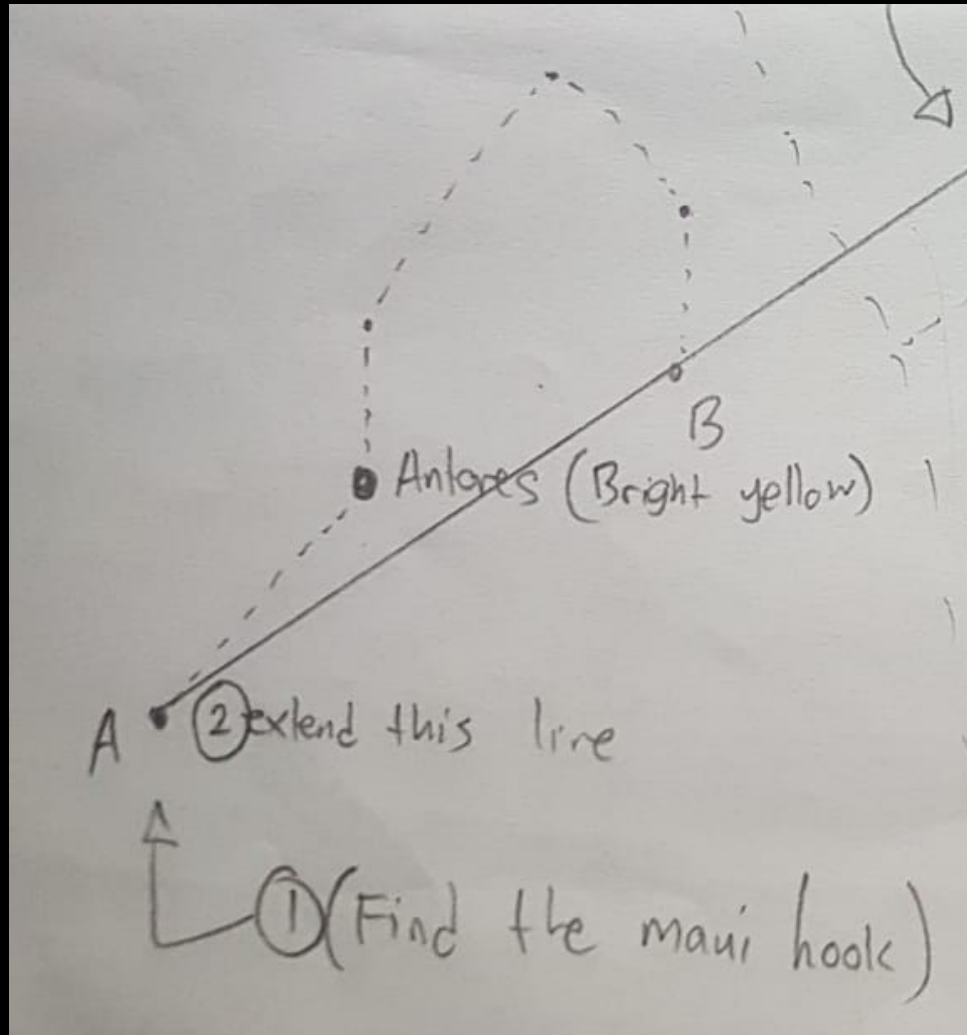 B
Antares (Bright yellow)
A
② extend this line
① (Find the maui hook)